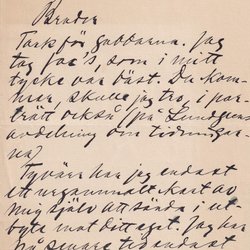 Broder
Tack för gubbarna. Jag
tog Jac's, som i mitt
tycke var bäst. Du kom-
mer, skulle jag tro, i por-
trätt också (på Lundgrens
avdelning om tidningar-
na)
Tyvärr har jag endast
ett uråldrigt kort av
mig själv att sända i ut-
byte mot ditt eget. Jag har
på senare tid endast